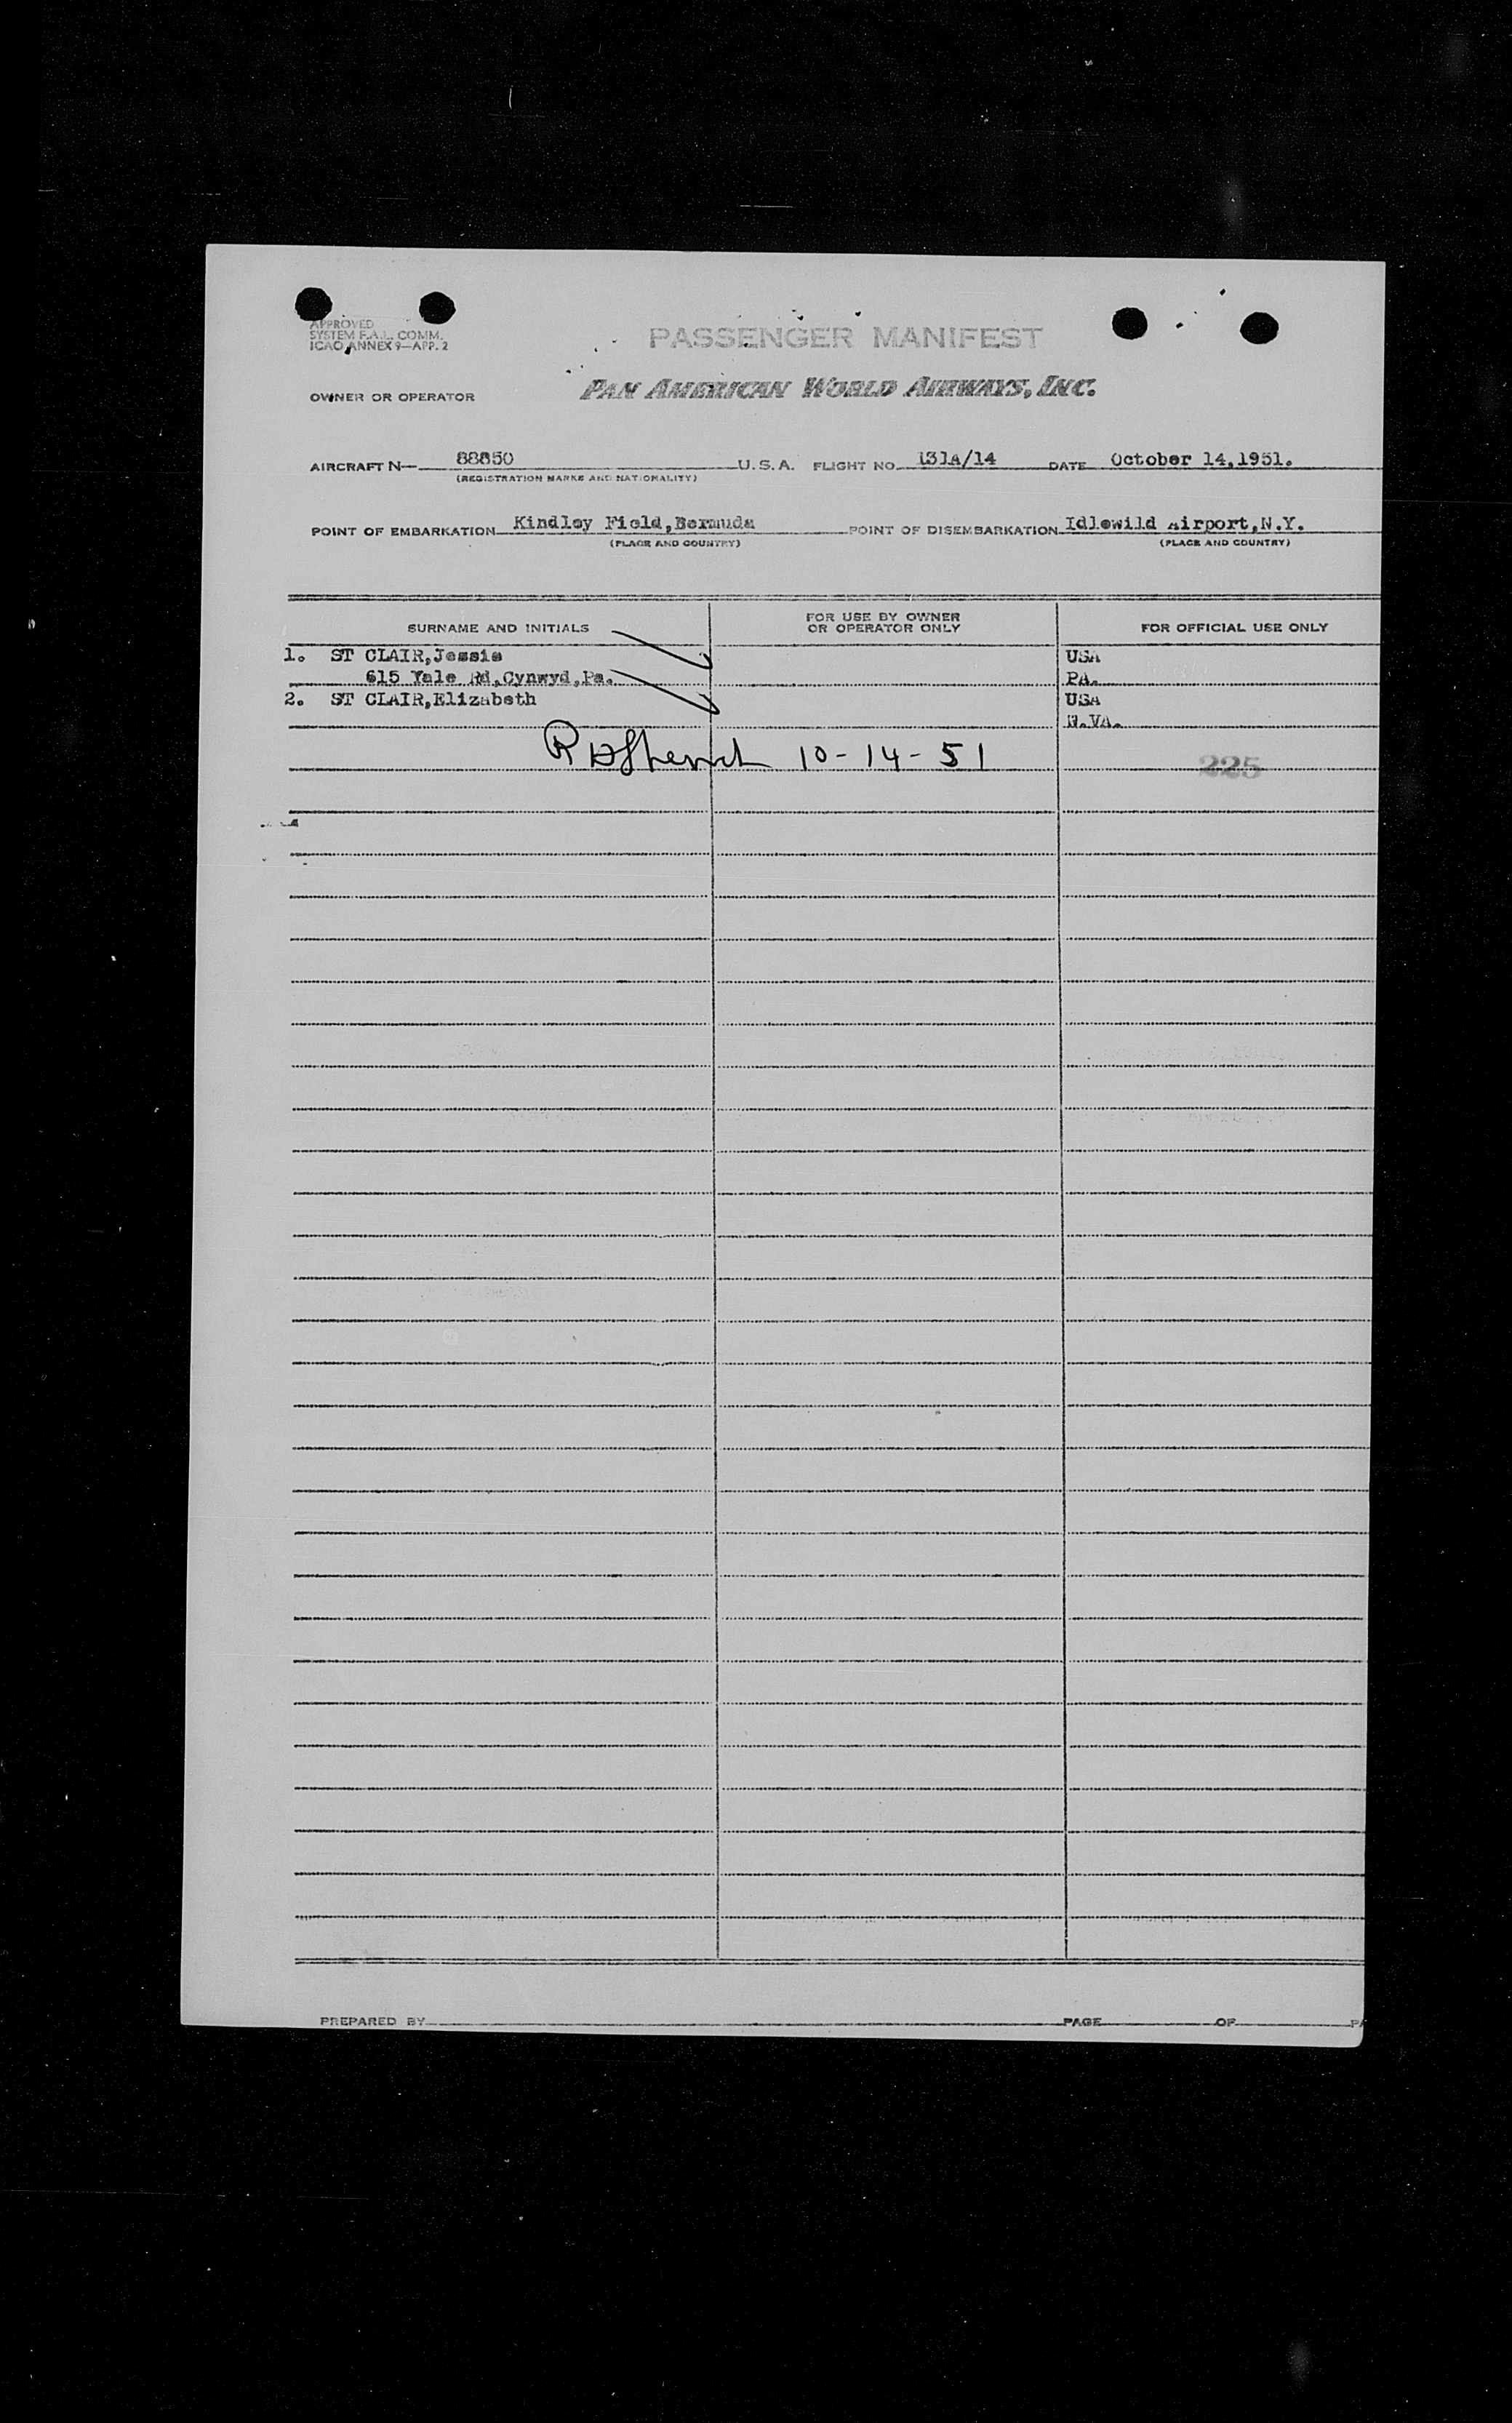 APPROVED
SYSTEM F.A.L. COMM.
ICAO ANNEX 9—APP. 2
PASSENGER MANIFEST
OWNER OR OPERATOR PAN AMERICAN WORLD AIRWAYS, INC.
AIRCRAFT N— 88850 U.S.A. FLIGHT NO. 131A/14 DATE October 14,1951.
(REGISTRATION MARKS AND NATIONALITY)
POINT OF EMBARKATION Kindley Field,Bermuda POINT OF DISEMBARKATION Idlewild Airport,N.Y.
(PLACE AND COUNTRY) (PLACE AND COUNTRY)
SURNAME AND INITIALS FOR USE BY OWNER OR OPERATOR ONLY FOR OFFICIAL USE ONLY
1. ST CLAIR,Jessie USA
615 Yale Rd,Cynwyd,Pa. PA.
2. ST CLAIR,Elizabeth USA
W.VA.
10-14-51 225
PREPARED BY PAGE OF PA